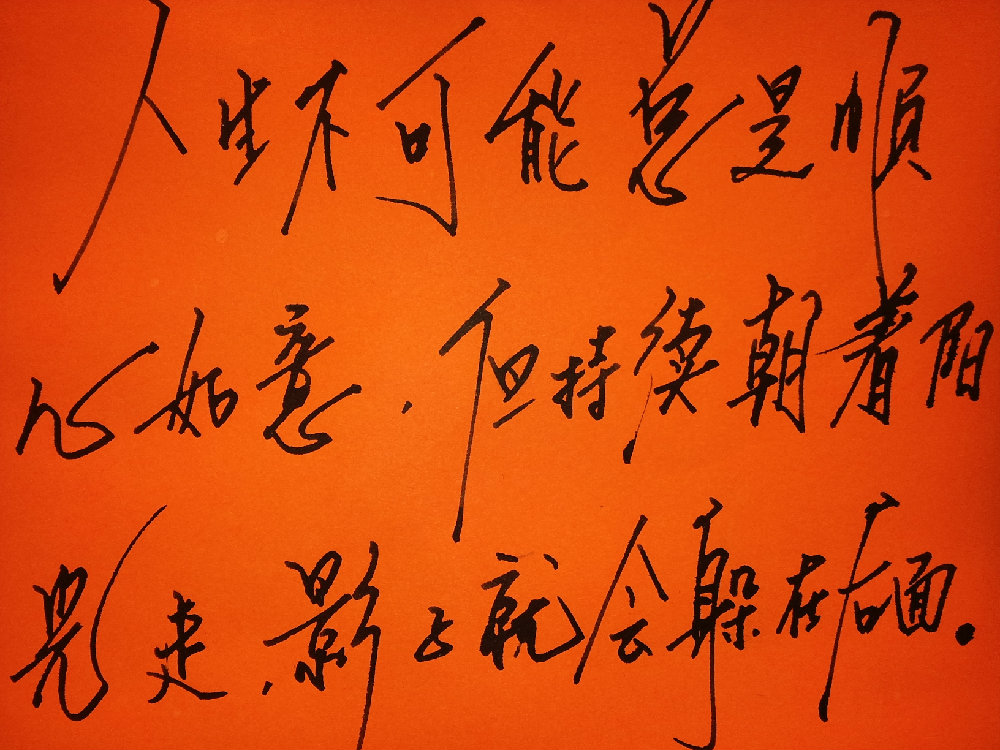 人生不可能总是顺
心如意，但持续朝着阳
光走，影子就会躲在后面。